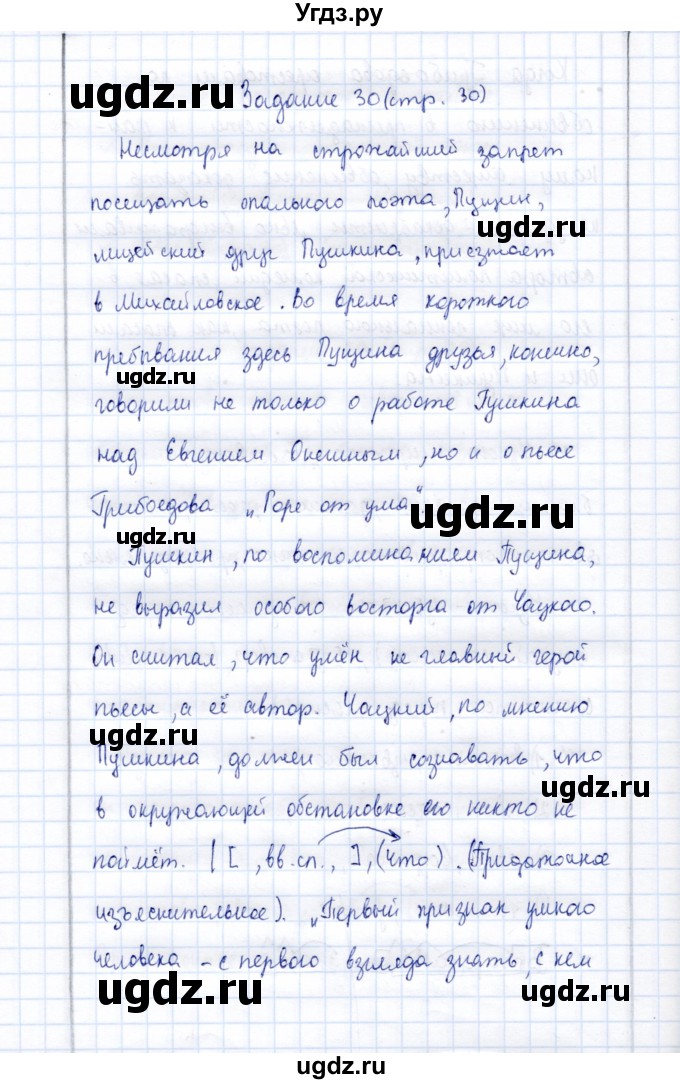 Угдз.ру
ugdz.ru Задание 30 (стр. 30)
Несмотря на строжайший запрет
посещать опального поэта, Пущин,
ugdz.ru
лицейский друг Пушкина, приезжает
в Михайловское. Во время короткого
пребывания здесь Пущина друзья, конечно,
ugdz.ru
говорили не только о работе Пушкина
над Евгением Онегиным, но и о пьесе
Грибоедова „Горе от ума“.
ugdz.ru
Пушкин, по воспоминанием Пущина,
не выразил особого восторга от Чацкого.
ugdz.ru
Он считал, что умён не главный герой
пьесы, а её автор. Чацкий, по мнению
ugdz.ru
Пушкина, должен был сознавать, что
ugdz.ru
в окружающей обстановке его никто не
поймёт. | [ , вв.сл., ], (что). (Придаточное
изъяснительное). „Первый признак умного
человека - с первого взгляда знать, с кем
ugdz.ru ugdz.ru
ugdz.ru